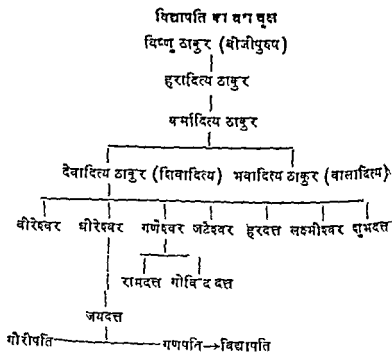 विद्यापति का वंश वृक्ष
विष्णु ठाकुर (बीजीपुरुष)
हरादित्य ठाकुर
कर्मादित्य ठाकुर
देवादित्य ठाकुर (शिवादित्य) भवादित्य ठाकुर (वालादित्य)
वीरेश्वर धीरेश्वर गणेश्वर जटेश्वर हरदत्त लक्ष्मीश्वर शुभदत्त
रामदत्त गोविन्द दत्त
जयदत्त
गौरीपति गणपति→विद्यापति